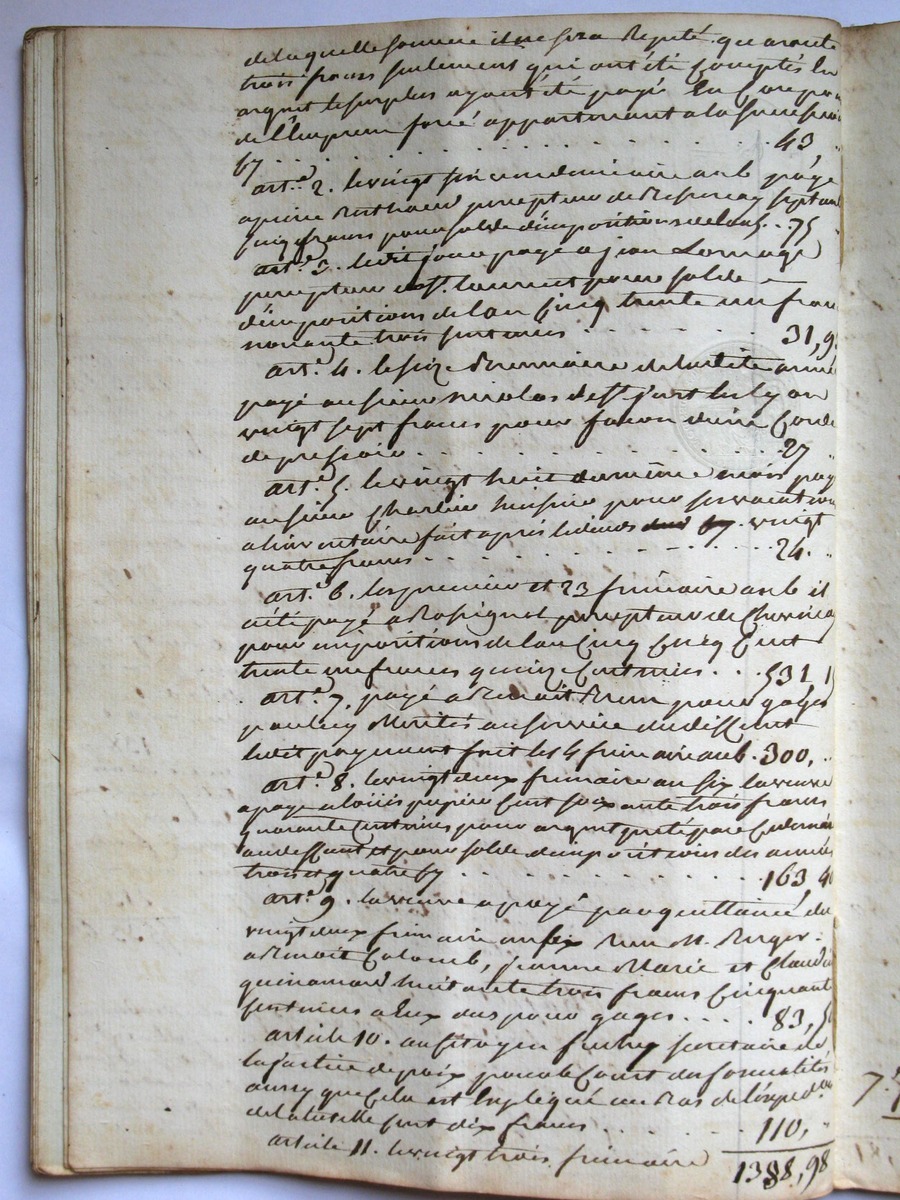 de laquelle somme il ne sera Reputé quarante
trois francs seulement qui ont été comptés En
argent le surplus ayant été payé En Coupon
de l'Emprun forcé appartenant a la succession
cy . . . 43,
art.e 2. le vingt six vendemiaire an 6 payé
a pierre perrcepteur de septante
cinq francs pour solde d'impositions de l'an 5. . 75
art.e 3. ledit jour payé a jean Lornage
percepteur de St. Laurent pour solde
d'impositions de l'an Cinq trente un francs
nonante trois centimes . . . 31,9
art.e 4. le seize Brumaire de ladite année
payé au sieur nicolas de St. just les Lyon
vingt sept francs pour façon d'une Corde
de pressoir . . . 27
art.e 5. le vingt huit du même mois payé
au sieur Charlin huissier pour ses vacations
a l'inventaire fait après le décès cy. vingt
quatre francs . . . 24.
art.e 6. les premier et 23 frimaire an 6 il
a été payé a Rosignol percepteur de
pour impositions de l'an Cinq Cinq Cent
trente un francs quinze Centimes . . . 531 1
art.e 7. payé a Benoit Brun pour gages
par luy Mérités au service du deffunt
ledit payement fait le 4 frimaire an 6. 300,
art.e 8. le vingt deux frimaire an six la veuve
a payé a Louis papier Cent soixante trois francs
quarante Centimes pour argent preté par Ce dernier
au deffunt et pour solde d'impositions des années
trois et quatre cy . . . 163 4
art.e 9. la veuve a payé par quittance du
vingt deux frimaire an six Reçu M.e Roger
a Benoit Colomb, jeanne Marie et Claudine
guinamard huitante trois francs Cinquante
centimes a Eux dus pour gages . . . 83,5
article 10. au Citoyen secretaire de
la justice de paix pour le Cout des formalités
ainsy que Cela est Expliqué au Bas de l'Expedon
de la tutelle cent dix francs . . . 110,
1388,98
article 11. le vingt trois frimaire
7.